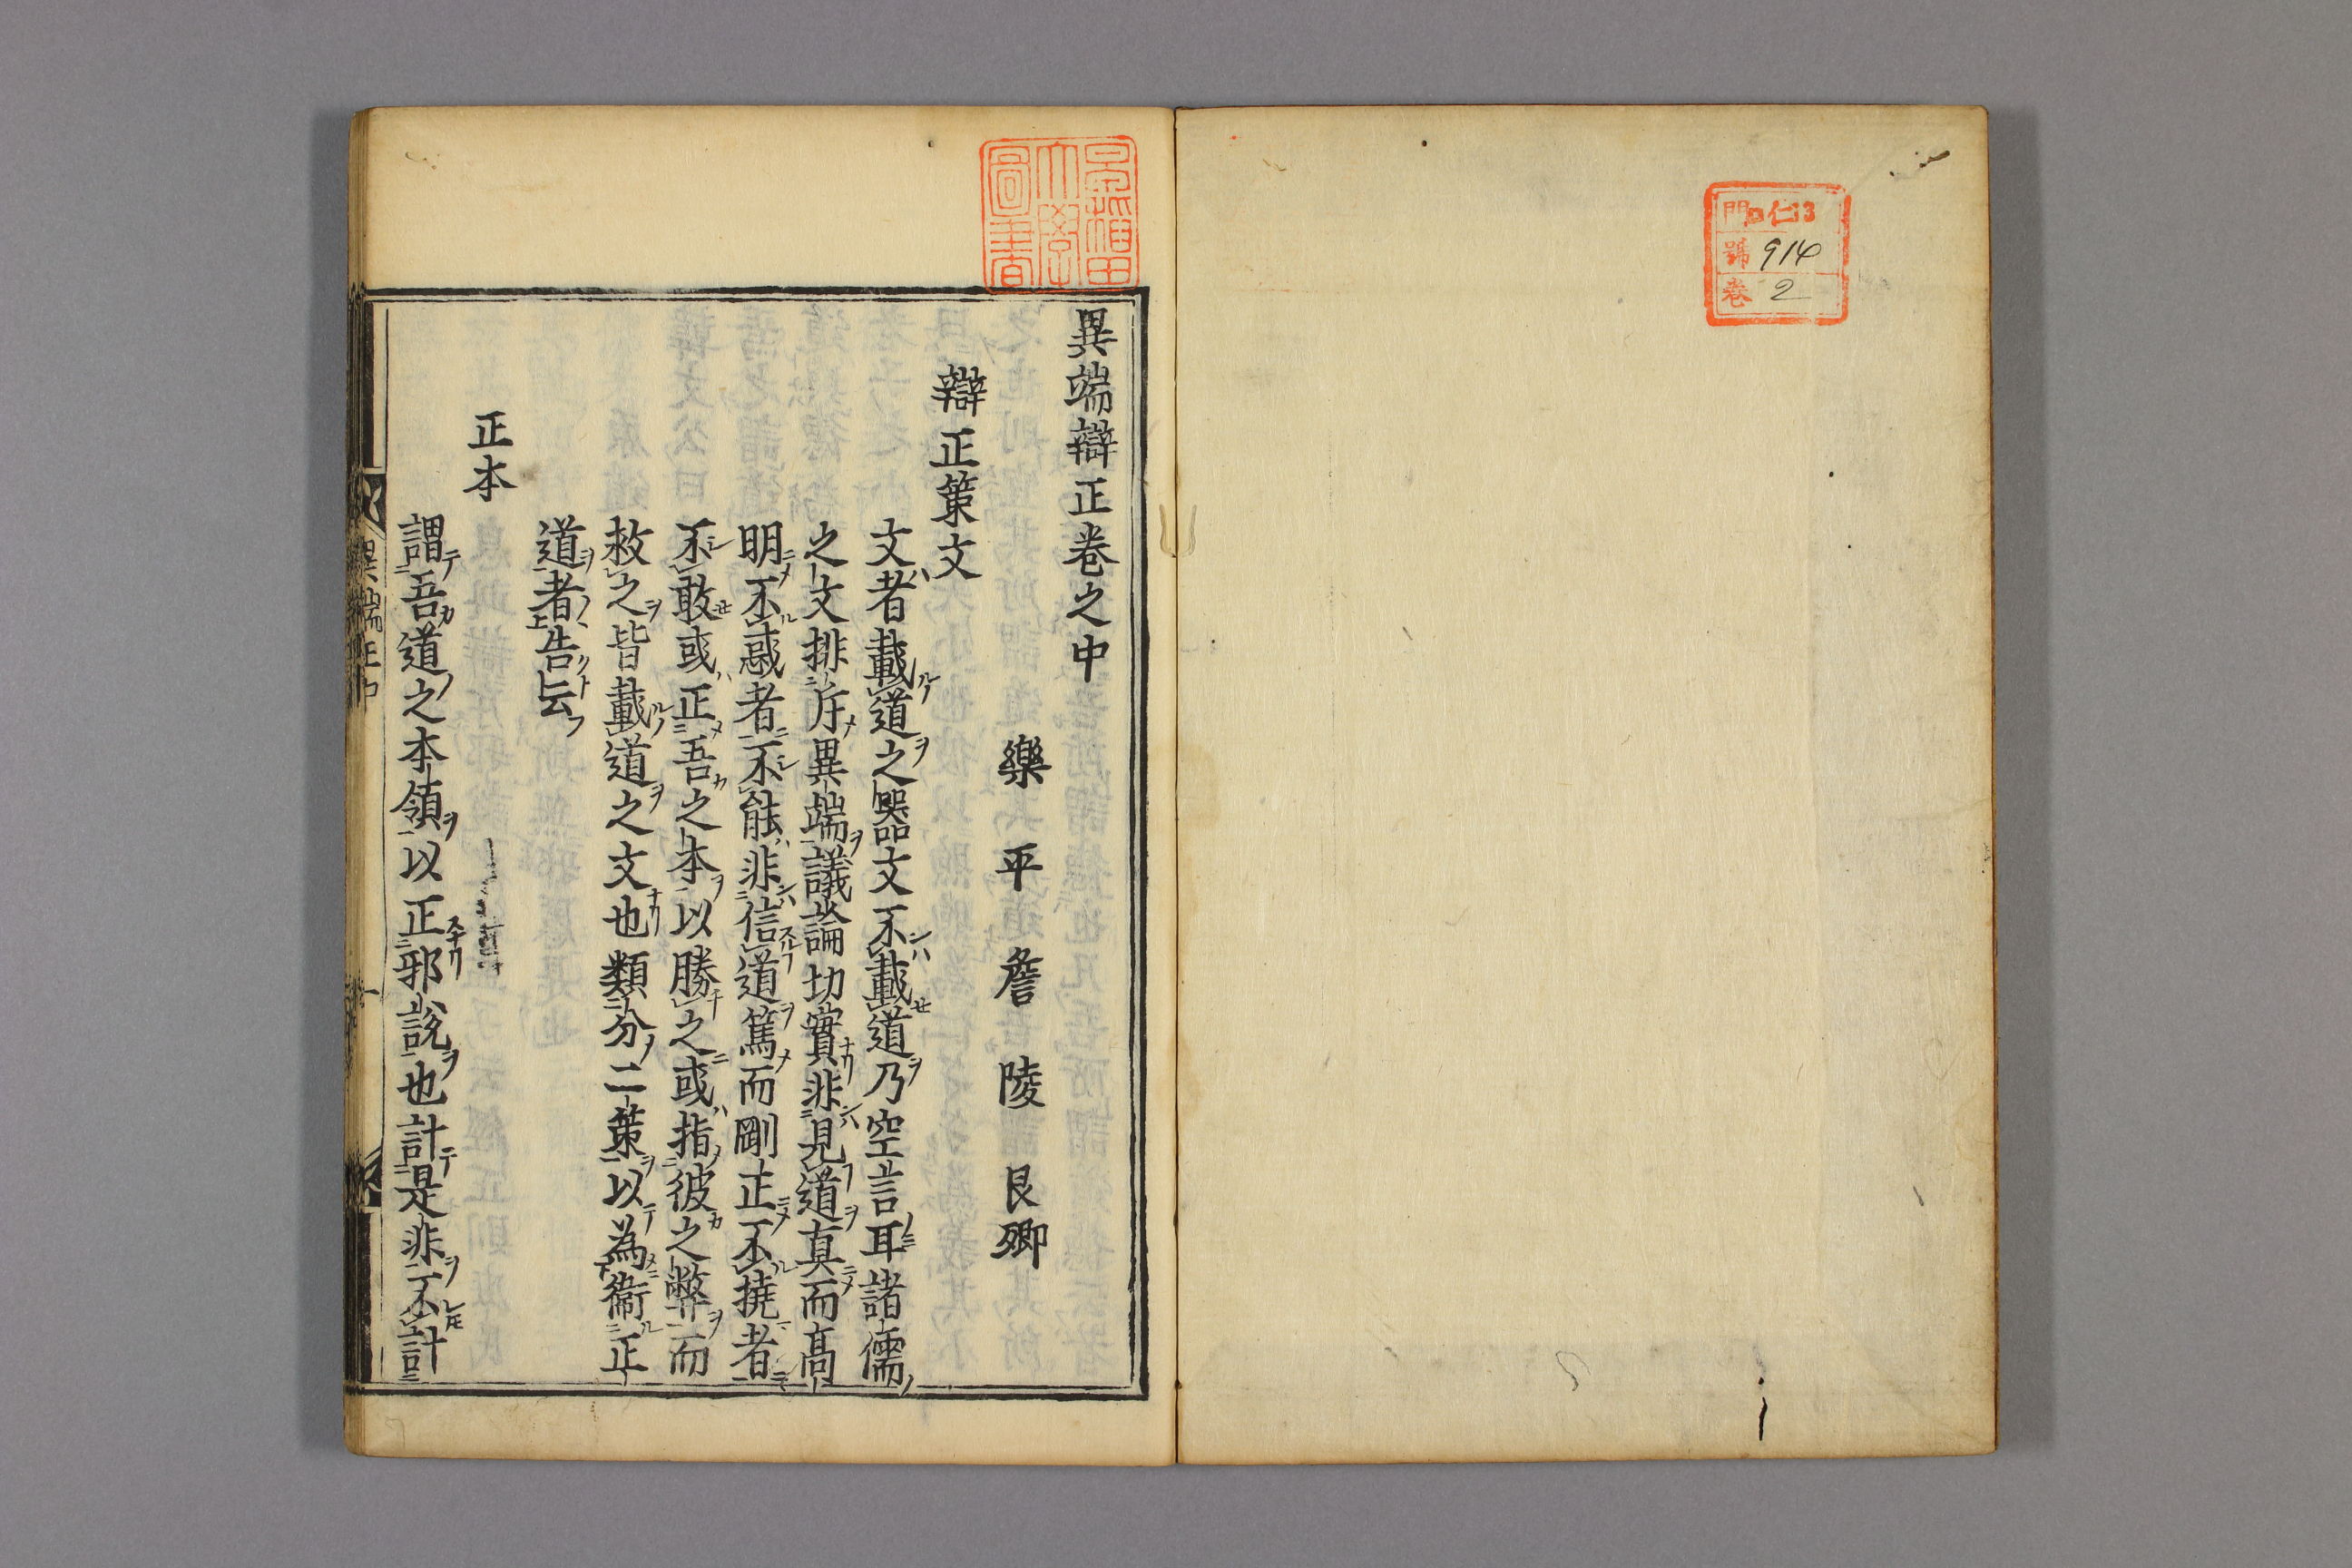 門 ロ仁13
號 914
卷 2
早稲田
大學
圖書
異端辯正卷之中
樂平 詹陵 艮卿
辯正策文
文者載道之器文不載道乃空言耳諸儒
之文排斥異端議論切實非見道真而高
明不惑者不能非信道篤而剛正不撓者
不敢或正吾之本以勝之或指彼之弊而
救之皆載道之文也類分二策以為衞正
道者告云
正本
謂吾道之本領以正邪說也計是非不計
異端正中
一